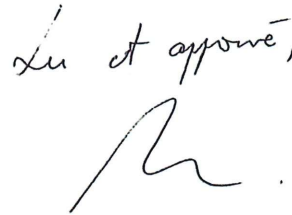 Lu et approuvé,